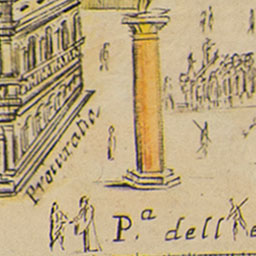 Procuratia
P.ª dell